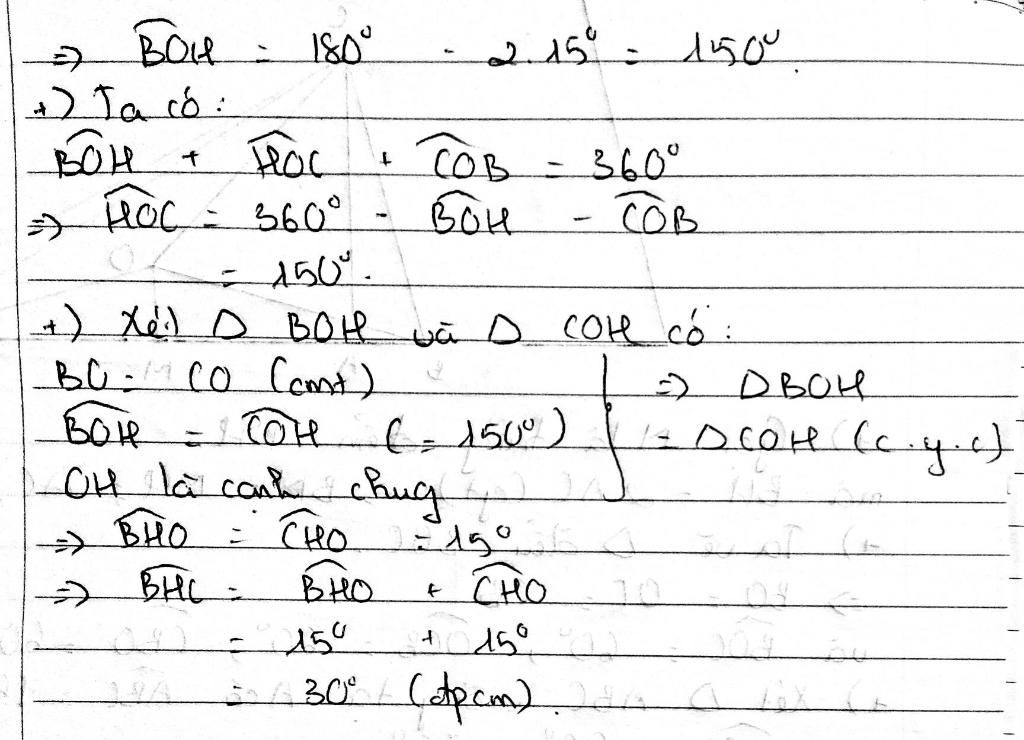 => BOH = 180° - 2.15° = 150°.
+) Ta có:
BOH + HOC + COB = 360°
=> HOC = 360° - BOH - COB
= 150°.
+) Xét Δ BOH và Δ COH có:
BO = CO (cmt)
BOH = COH (= 150°) => ΔBOH
OH là cạnh chug = ΔCOH (c.g.c)
=> BHO = CHO = 15°
=> BHC = BHO + CHO
= 15° + 15°
= 30° (đpcm).